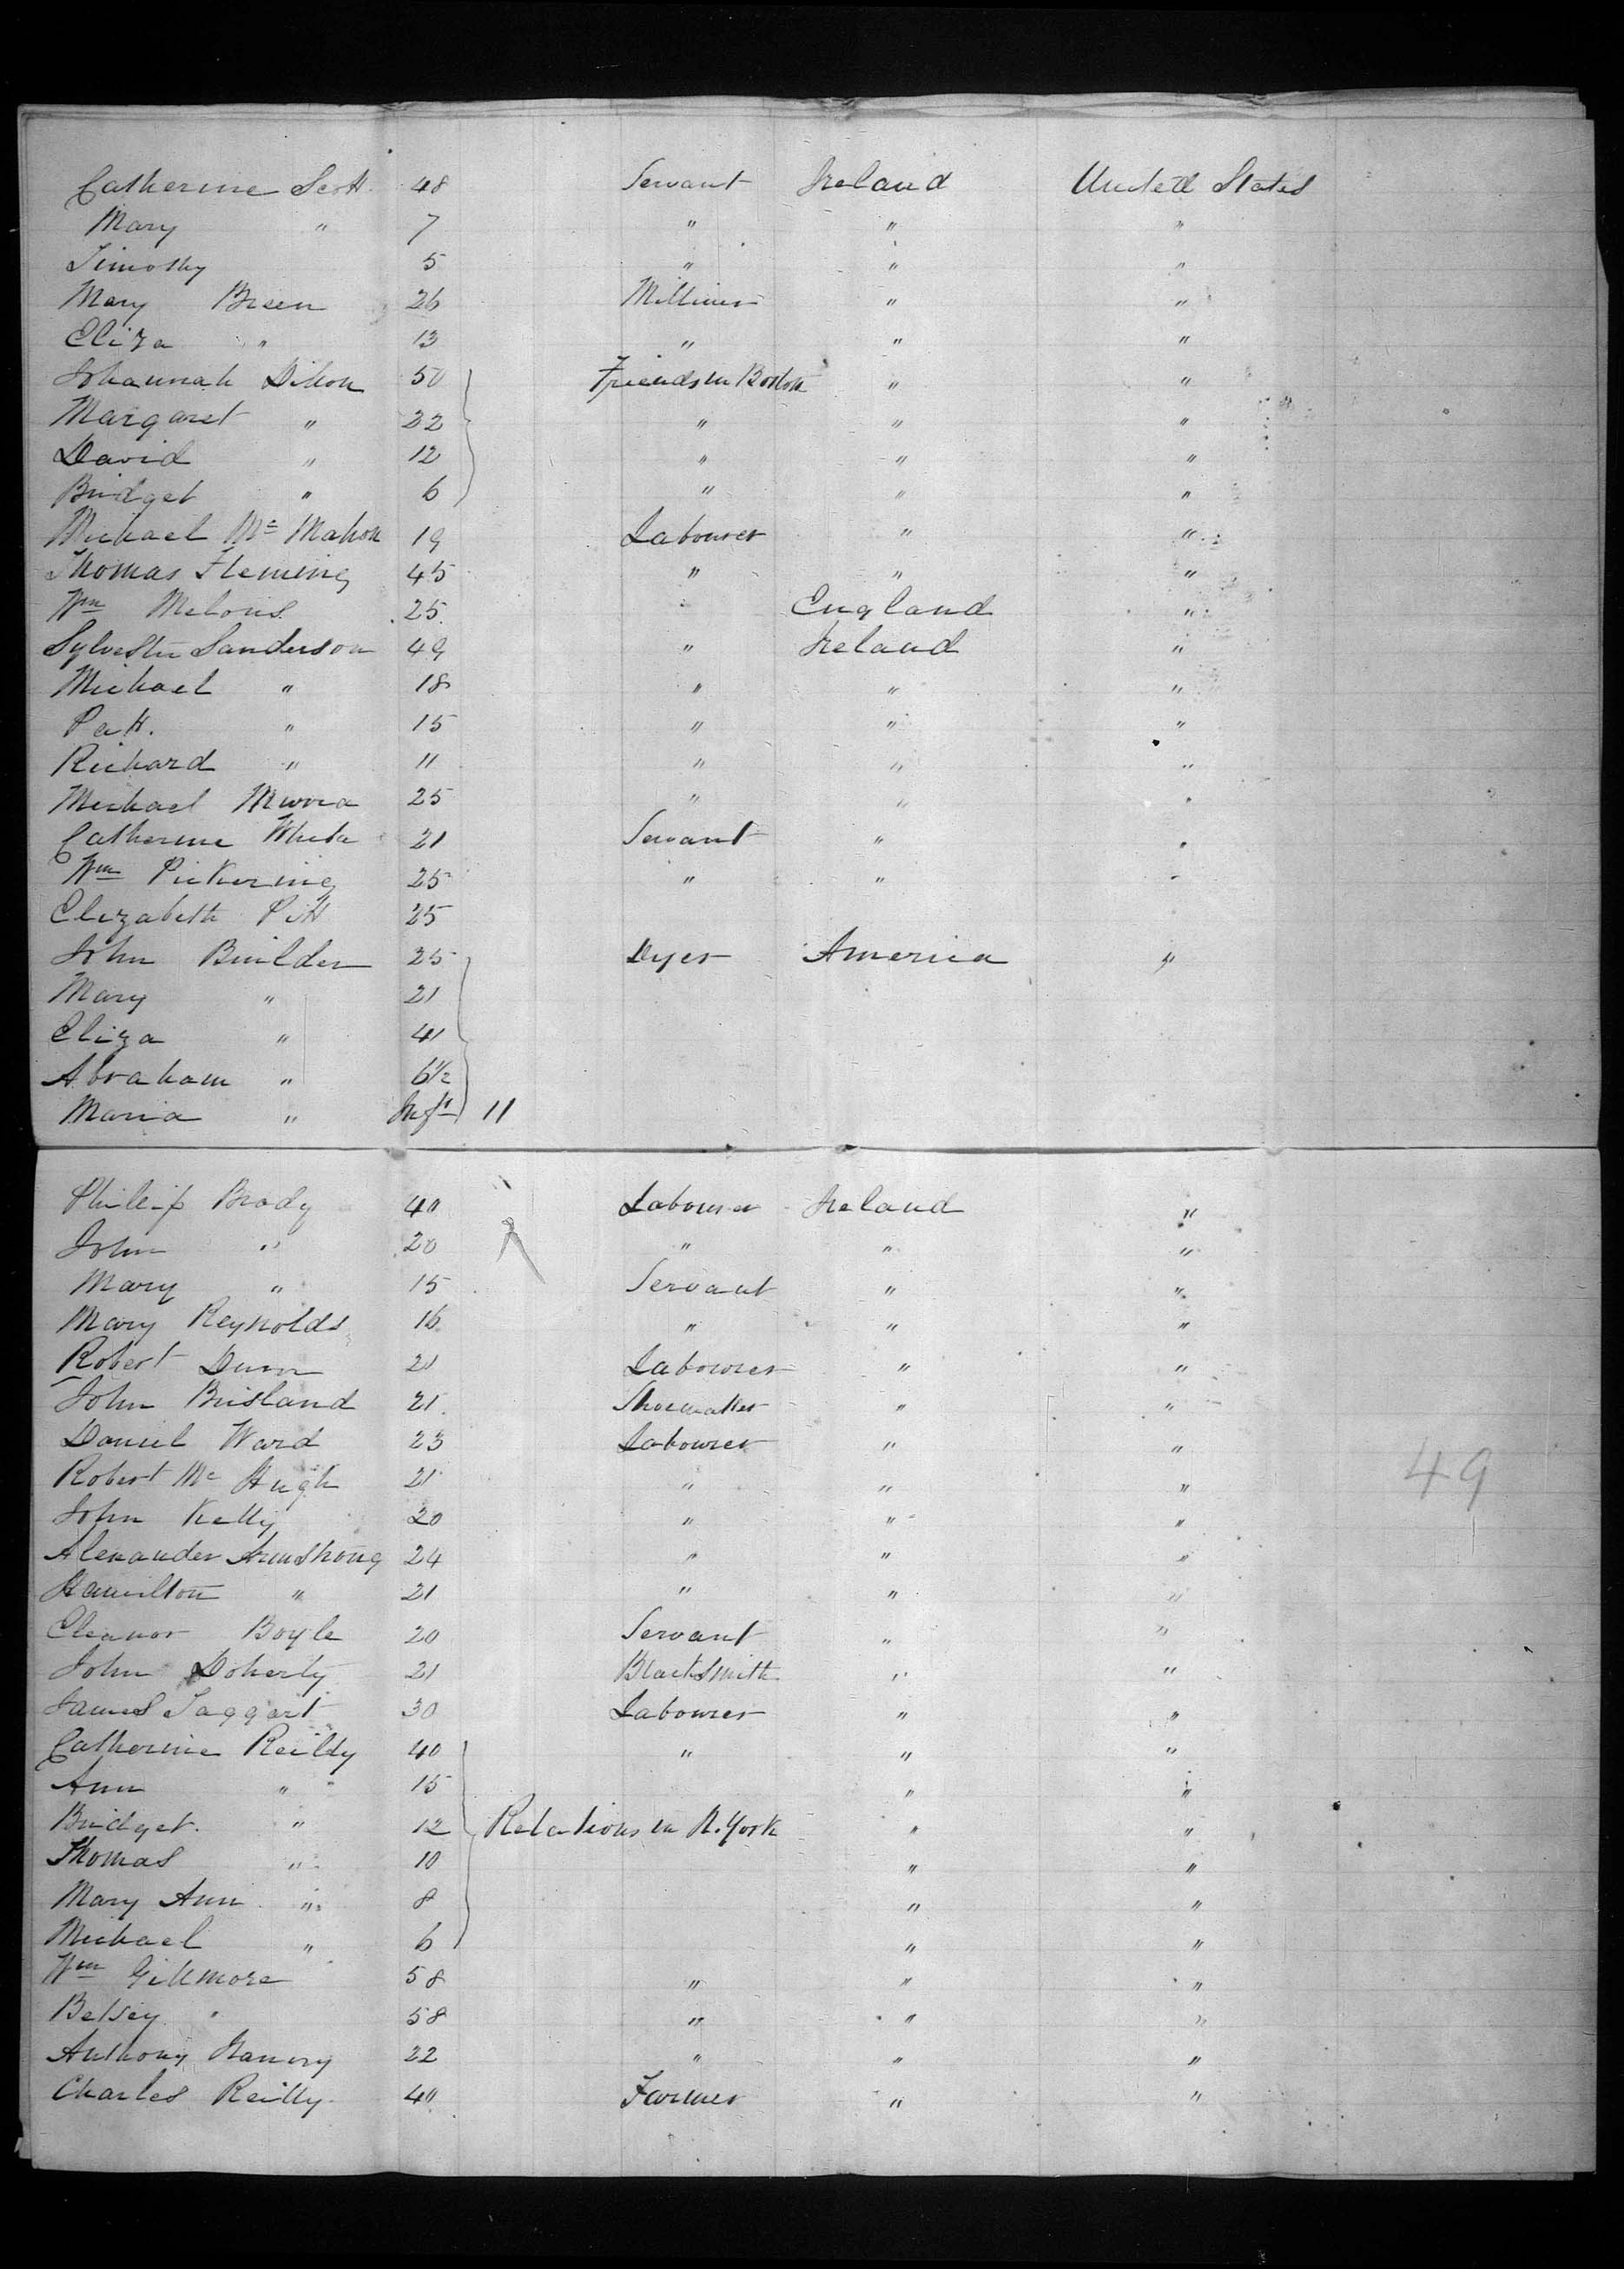 Catherine Scott 48 Servant Ireland United States
Mary " 7 " " "
Timothy 5 " " "
Mary Breen 26 Milliner " "
Eliza " 13 " " "
Johannah Dillon 50 Friends in Boston " "
Margaret " 22 " " "
David " 12 " " "
Bridget " 6 " " "
Michael Mc Mahon 19 Labourer " "
Thomas Fleming 45 " " "
Wm 25 England "
Sylvester Sanderson 49 " Ireland "
Michael " 18 " " "
Patt. " 15 " " "
Richard " 11 " " "
Michael 25 " " "
Catherine White 21 Servant " "
Wm Pickering 25 " " "
Elizabeth Pitt 25
John Builder 25 Dyer America "
Mary " 21
Eliza " 41
Abraham " 6½
Maria " Inft 11
Philip Brady 40 Labourer Ireland "
John " 20 " " "
Mary " 15 Servant " "
Mary Reynolds 16 " " "
Robert Dunn 21 Labourer " "
John Brisland 21 Shoemaker " "
Daniel Ward 23 Labourer " "
Robert Mc Hugh 21 " " "
49
John Kelly 20 " " "
Alexander Armstrong 24 " " "
Hamilton " 21 " " "
Eleanor Boyle 20 Servant " "
John Doherty 21 Blacksmith " "
James Taggart 30 Labourer " "
Catherine Reilly 40 " " "
Ann " 15 " "
Bridget. " 12 Relations in N. York " "
Thomas " 10 " "
Mary Ann " 8 " "
Michael " 6 " "
Wm Gillmore 58 " " "
Betsey " 58 " " "
Anthony 22 " " "
Charles Reilly 40 Farmer " "